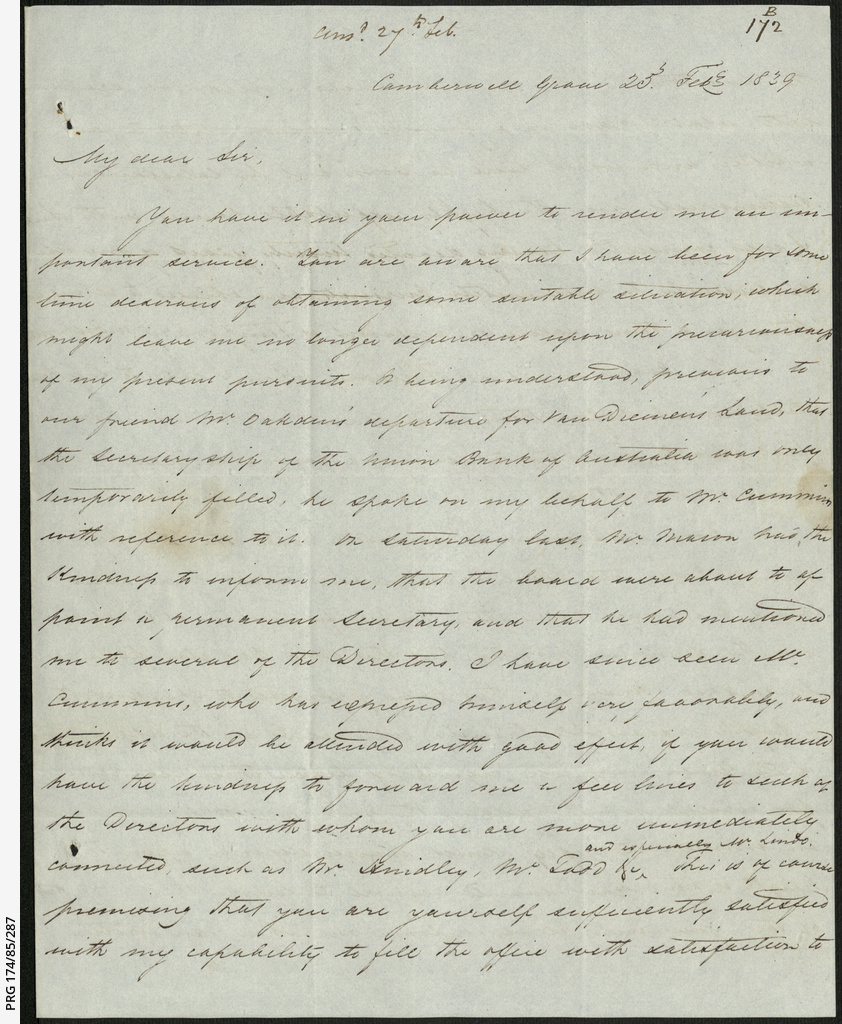 B
172
Ansd. 27th Feb.
Camberwell Grove 25th Feby 1839
My dear Sir,
You have it in your power to render me an im-
portant service. You are aware that I have been for some
time desirous of obtaining some suitable situation, which
might leave me no longer dependent upon the precariousness
of my present pursuits. It being understood, previous to
our friend Mr. Oakden's departure for Van Diemen's Land, that
the Secretaryship of the Union Bank of Australia was only
temporarily filled, he spoke on my behalf to Mr. Cummins
with reference to it. On Saturday last, Mr. Mason had the
kindness to inform me, that the board were about to ap
point a permanent Secretary, and that he had mentioned
me to several of the Directors. I have since seen Mr.
Cummins, who has expressed himself very favorably, and
thinks it would be attended with good effect, if you would
have the kindness to forward me a few lines to such of
the Directors with whom you are more immediately
and especially Mr. Sands.
connected, such as Mr. , Mr. Todd &c, This is of course
premising that you are yourself sufficiently satisfied
with my capability to fill the office with satisfaction to
PRG 174/85/287